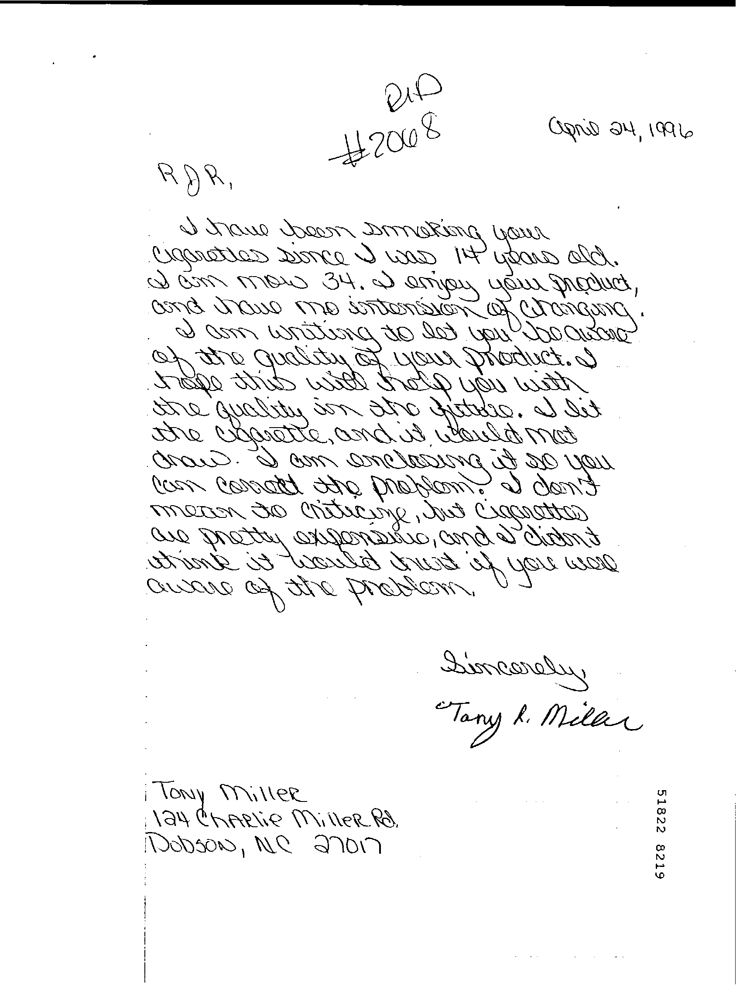 RIP
#2068
April 24, 1996
RJR,
I have been smoking your
cigarettes since I was 14 years old.
I am now 34. I enjoy your product,
and have no intension of changing.
I am writing to let you be aware
of the quality of your product. I
hope this will help you with
the quality in the future. I lit
the cigarette, and it would not
draw. I am enclosing it so you
can correct the problem. I don't
mean to criticize, but cigarettes
are pretty expensive, and I didn't
think it would hurt if you were
aware of the problem.
Sincerely,
Tony R. Miller
Tony Miller
124 Charlie Miller Rd.
Dobson, NC 27017
51822 8219